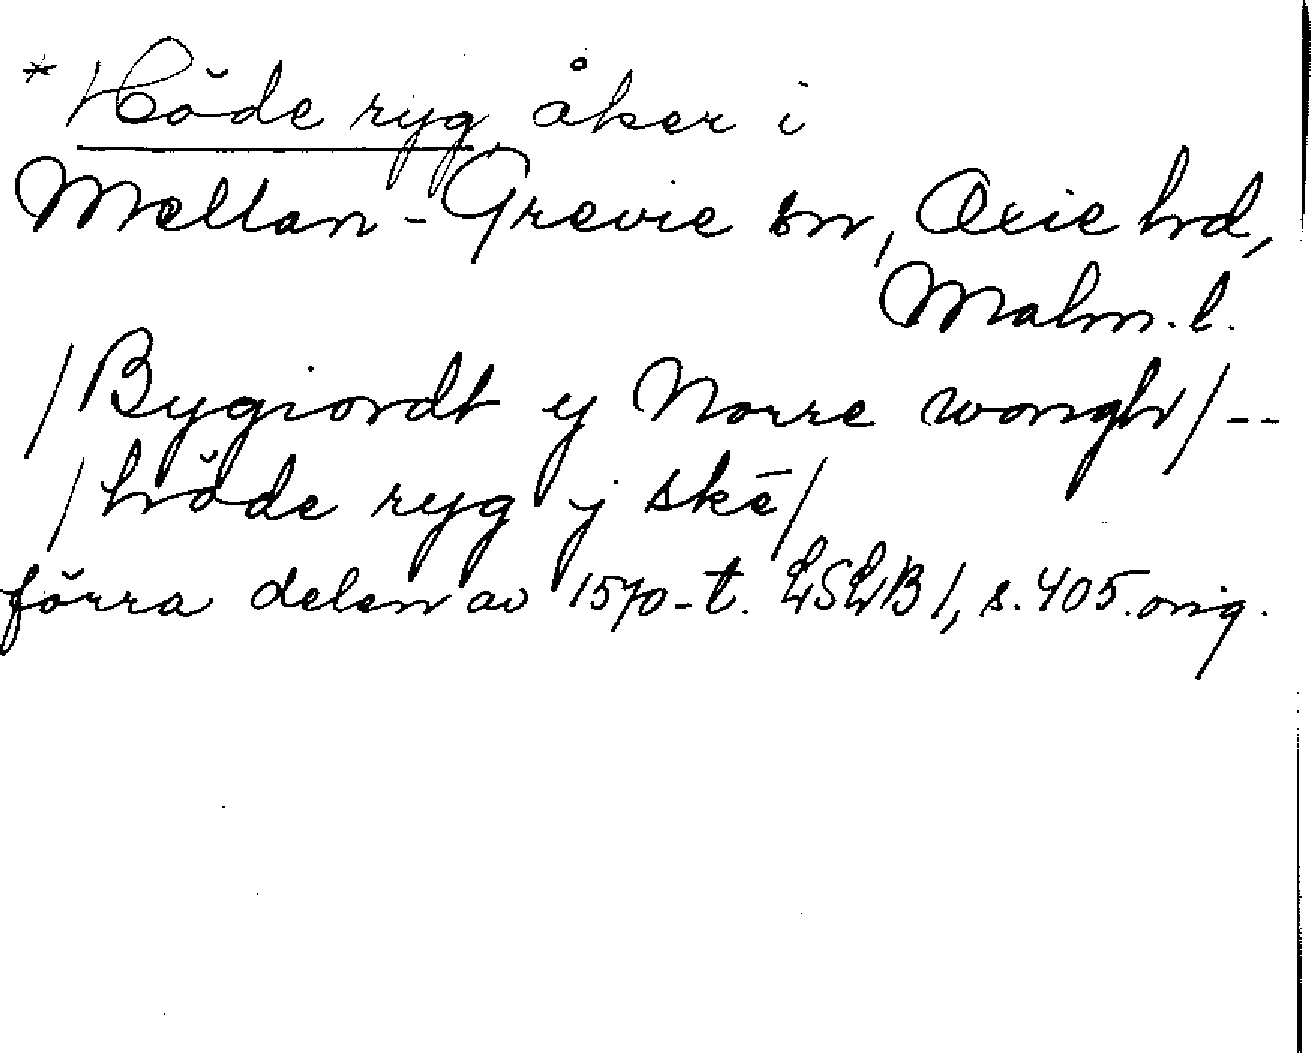 * Höde ryg, åker i
Mellan-Grevie sn, Oxie hd,
Malm. l.
/Bygiordt y Norre wongh/--
/höde ryg y skē/
förra delen av 1570-t. LSLB 1, s. 405. orig.